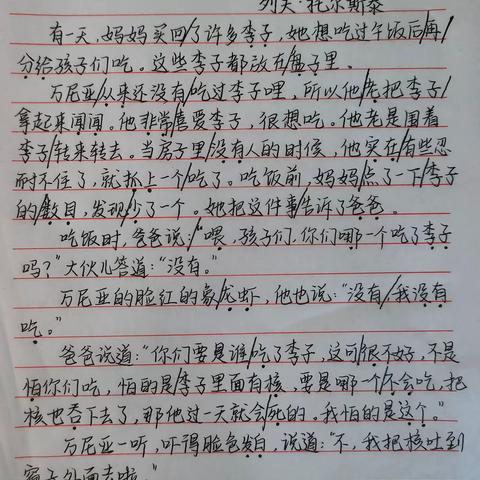 列夫·托尔斯泰
有一天,妈妈买回/了许多李子,她想吃过午饭后/再/
分给孩子们吃。这些李子都放在盘子里。
万尼亚/从来还没有/吃过李子哩,所以他/先把李子/
拿起来闻闻。他非常喜爱李子,很想吃。他老是围着
李子/转来转去。当房子里/没有人的时候,他实在/有些忍
耐不住了,就抓上一个/吃了。吃饭前,妈妈/点了一下/李子
的/数目,发现/少了一个。她把这件事/告诉了爸爸。
吃饭时,爸爸说:/“喂,孩子们,你们哪一个吃了李子
吗?”大伙儿答道:“没有。”
万尼亚的脸红的象龙虾,他也说:“没有/我没有
吃。”
爸爸说道:“你们要是谁/吃了李子,这可/很不好,不是
怕你们吃,怕的是/李子里面有核,要是哪一个/不会吃,把
核也吞下去了,那他过一天就会/死的。我怕的是这个。”
万尼亚一听,吓得脸色发白,说道:“不,我把核吐到
窗子外面去啦。”